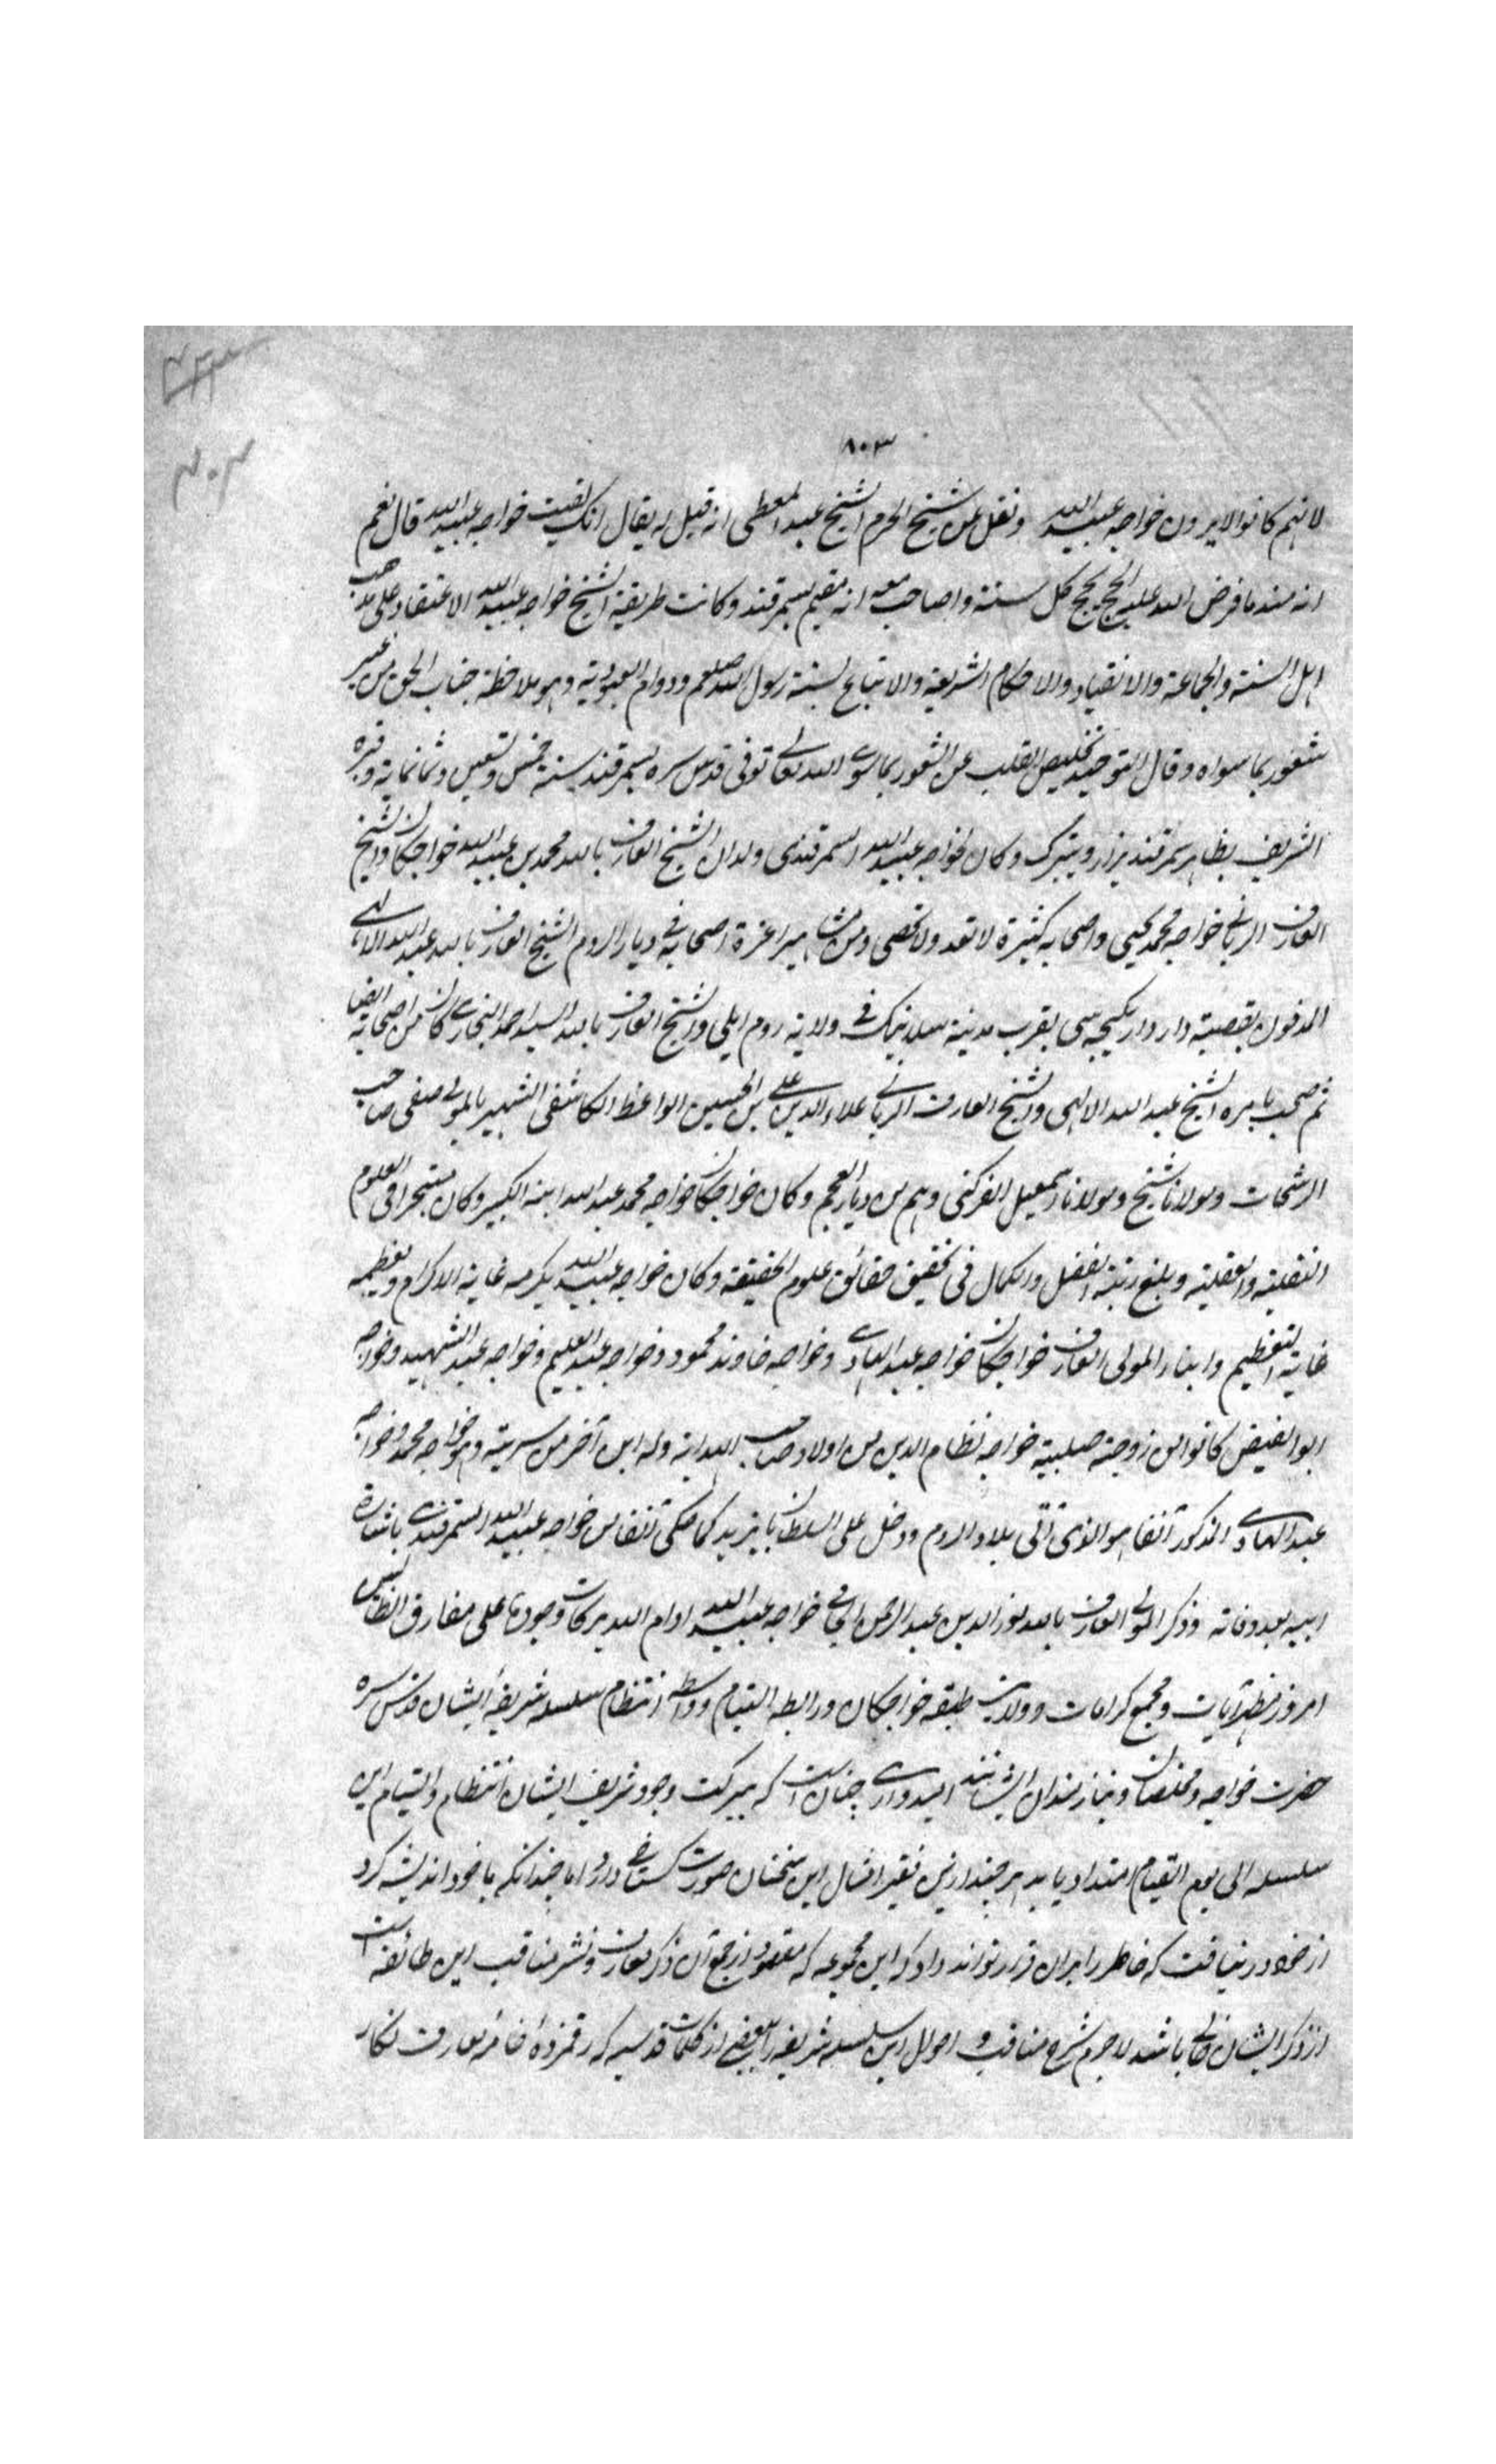 ٤٣٣
٣٠٣
٨٠٣
لانهم كانوا لا يرون خواجه عبيد الله ونقل عن شيخ الحرم الشيخ عبد المعطى انه قيل له يقال انك لقيت خواجه عبيد الله قال نعم
انه منذ ما فرض الله عليه الحج يحج كل سنة واصاحب معه انه مقيم بسمرقند وكانت طريقة الشيخ خواجه عبيد الله الاعتقاد على مذهب
اهل السنة والجماعة والانقياد والاحكام الشريعة والاتباع لسنة رسول الله صلعم ودوام العبودية وهو ملاحظة جناب الحق من غير
شعور بما سواه وقال التوحيد تخليص القلب عن الشعور بما سوى الله تعالى توفى قدس سره بسمرقند سنة خمس وتسعين وثمانماية وقبره
الشريف بظاهر سمرقند يزار ويتبرك وكان لخواجه عبيد الله السمرقندى ولدان الشيخ العارف بالله محمد بن عبيد الله خواجكان والشيخ
العارف الربانى خواجه محمد يحيى واصحابه كثيرة لا تعد ولا تحصى ومن مشاهير اعزة اصحابه فى ديار الروم الشيخ العارف بالله عبد الله الالهى
المدفون بقصبة واردار يكيجه سى بقرب مدينة سلانيك فى ولاية روم ايلى والشيخ العارف بالله السيد احمد البخارى كان من اصحابه ايضا
ثم صحب بامره الشيخ عبد الله الالهى والشيخ العارف الربانى علاء الدين على بن الحسين الواعظ الكاشفى الشهير بالمولى صفى صاحب
الرشحات ومولانا شيخ ومولانا اسمعيل الفركتى وهم من ديار العجم وكان خواجكان خواجه محمد عبد الله ابنه الكبير وكان متبحرا فى العلوم
النقلية والعقلية وبلغ رتبة الفضل والكمال فى تحقيق حقائق علوم الحقيقة وكان خواجه عبيد الله يكرمه غاية الاكرام ويعظمه
غاية التعظيم وابناء المولى العارف خواجكان خواجه عبد الهادى وخواجه خاوند محمود وخواجه عبد العليم وخواجه عبد الشهيد وخواجه
ابو الفيض كانوا من زوجته صلبية خواجه نظام الدين من اولاد صاحب الهداية وله ابن آخر من سريته وهو خواجه محمد وخواجه
عبد الهادى المذكور آنفا هو الذى اتى بلاد الروم ودخل على السلطان بايزيد كما حكى آنفا من خواجه عبيد الله السمرقندى باشارة
ابيه بعد وفاته وذكر المولى العارف بالله نور الدين عبد الرحمن الجامى خواجه عبيد الله ادام الله بركات وجوده على مفارق الطالبين
امروز مظهر آيات ومجمع كرامات وولايت طبقه خواجكان ورابطه التيام وواسطه انتظام سلسله شريفۀ ايشان قدس سره
حضرت خواجه ومخلصان ونيازمندان ايشانند اميدوارى چنان است كه ببركت وجود شريف ايشان انتظام والتيام اين
سلسله الى يوم القيام امتداد يابد هر چند ازين فقير امثال اين سخنان صورت كستاخى دارد اما چندانكه با خود انديشه كرد
از خود در نيافت كه خاطر را بران قرار تواند داد كه اين مجموعه كه مقصود از جمع آن ذكر معارف ونشر مناقب اين طائفه است
از ذكر ايشان خالى باشد لاجرم شرح مناقب و احوال اين سلسله شريفه را ببعضى از كلمات قدسيه كه رقم زدۀ خامۀ معارف نكار